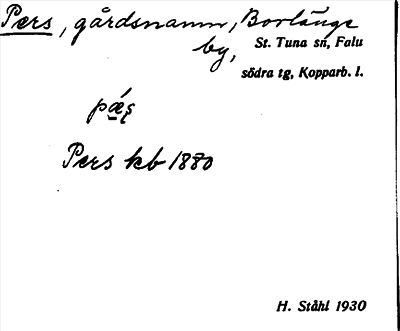 Pers, gårdsnamn, Borlänge
by, St. Tuna sn, Falu
södra tg, Kopparb. l.
pǽʂ
Pers kb 1880
H. Ståhl 1930